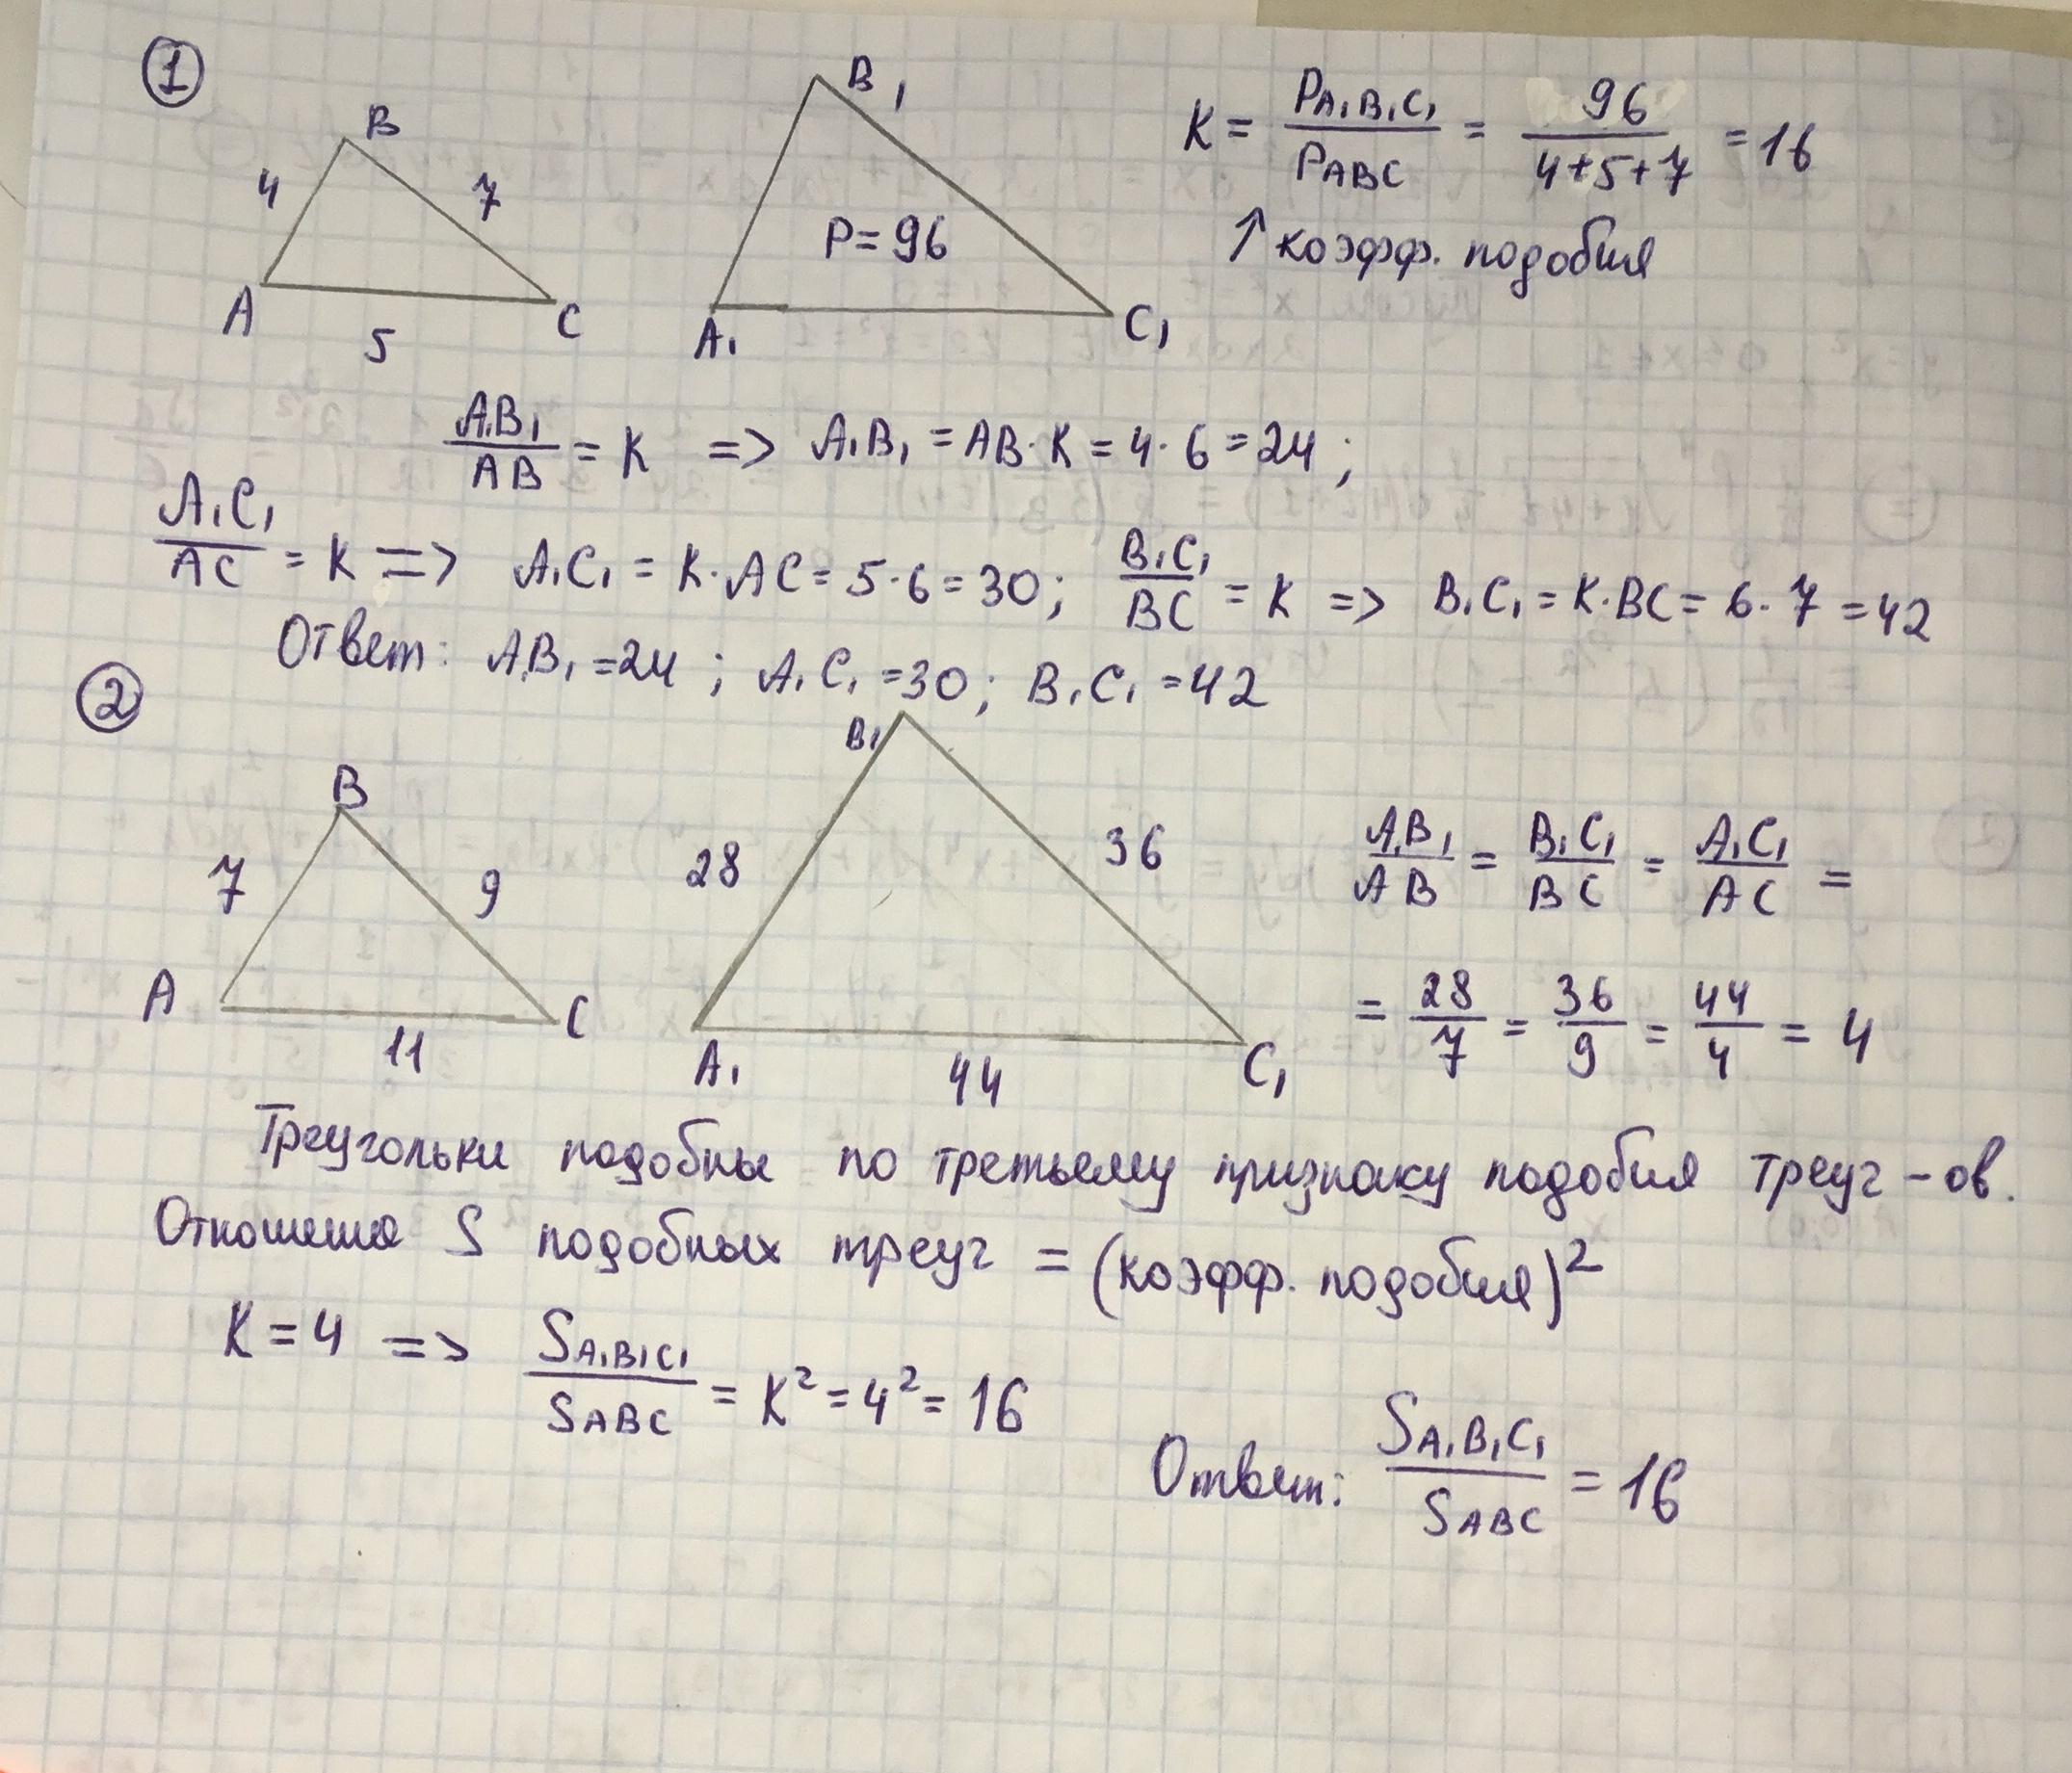 1
B
B₁
K = P_A₁B₁C₁ / P_ABC = 96 / (4+5+7) = 16
4
7
P=96
↑ коэфф. подобия
A
5
C
A₁
C₁
A₁B₁ / AB = K => A₁B₁ = AB·K = 4·6 = 24;
A₁C₁ / AC = K => A₁C₁ = K·AC = 5·6 = 30; B₁C₁ / BC = K => B₁C₁ = K·BC = 6·7 = 42
Ответ: A₁B₁ = 24; A₁C₁ = 30; B₁C₁ = 42
2
B₁
B
7
9
28
36
A₁B₁ / AB = B₁C₁ / BC = A₁C₁ / AC =
= 28 / 7 = 36 / 9 = 44 / 4 = 4
A
11
C
A₁
44
C₁
Треугольки подобны по третьему признаку подобия треуг-ов.
Отношения S подобных треуг = (коэфф. подобия)²
K = 4 => S_A₁B₁C₁ / S_ABC = K² = 4² = 16
Ответ: S_A₁B₁C₁ / S_ABC = 16